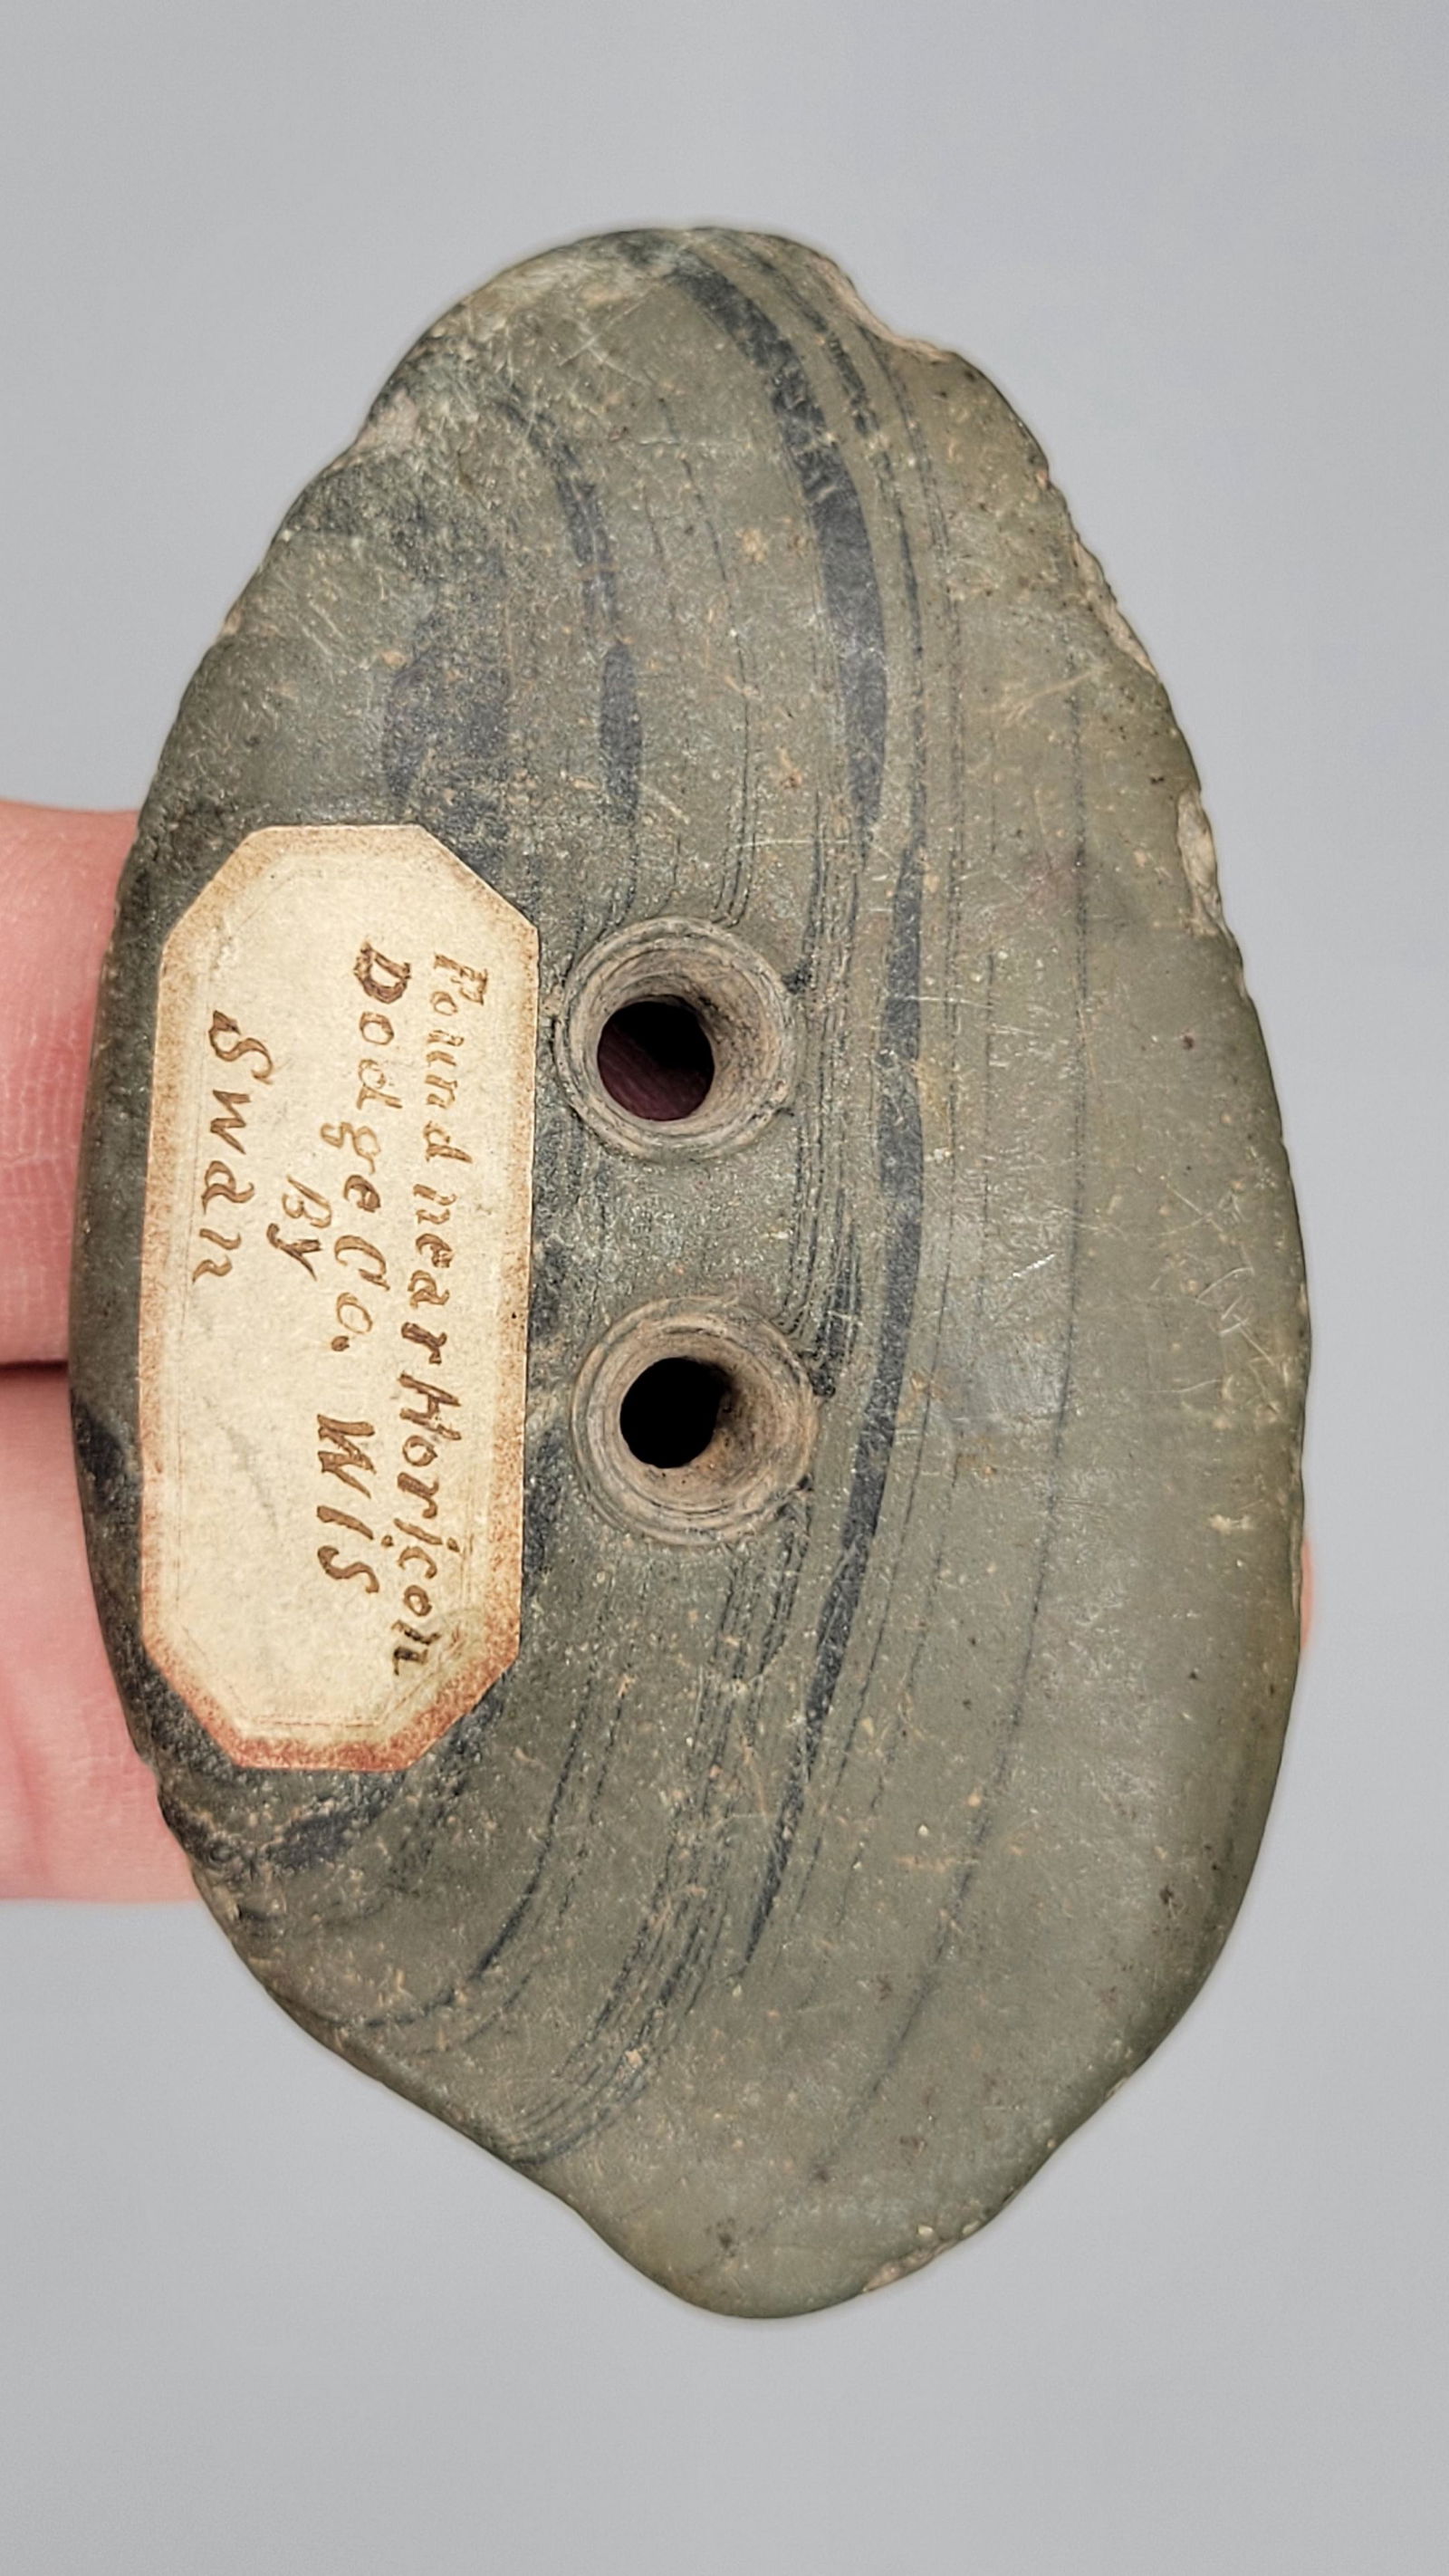 Found near Horicon
Dodge Co. WIS
By
Swan